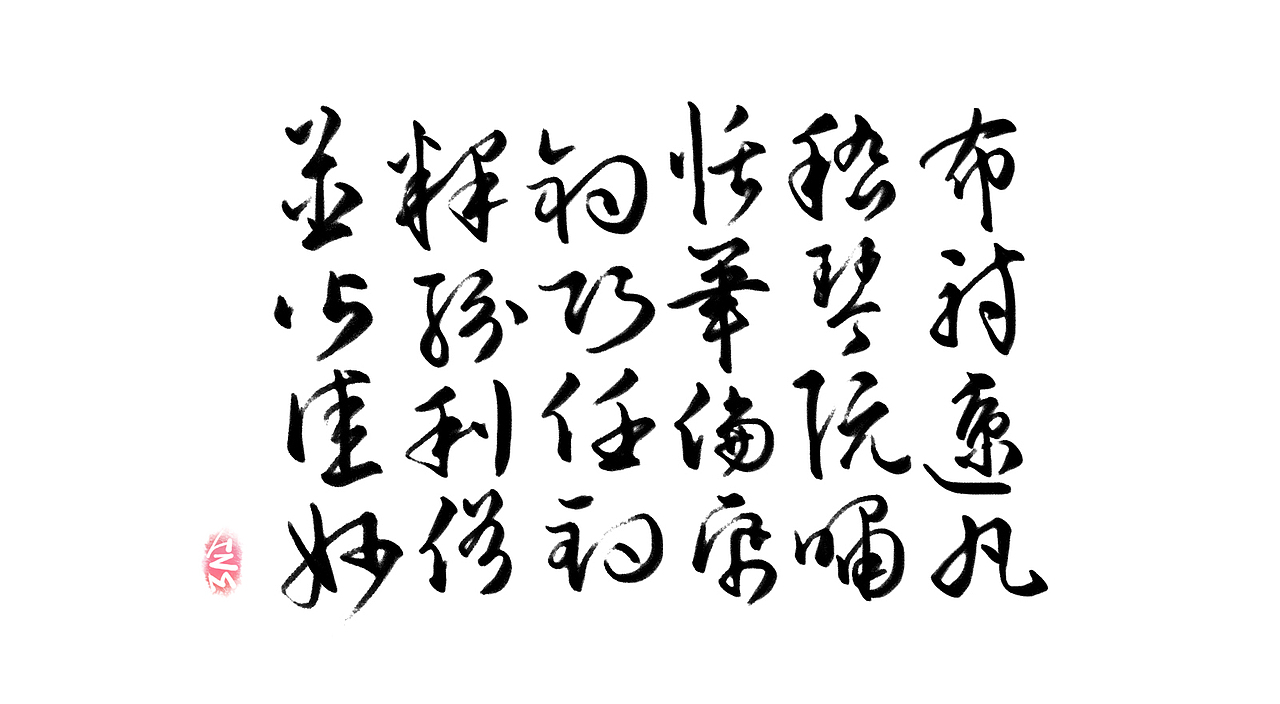 布射遼丸
嵇琴阮嘯
恬筆倫紙
鈞巧任釣
釋紛利俗
並皆佳妙